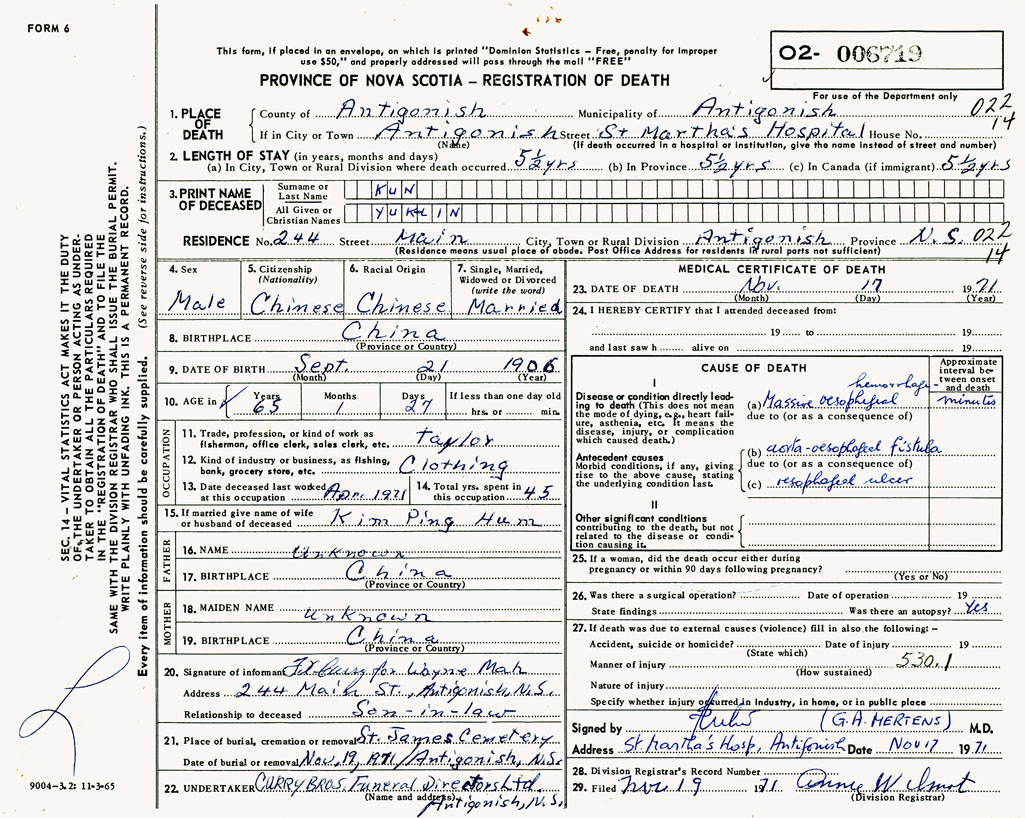 FORM 6
This form, if placed in an envelope, on which is printed "Dominion Statistics – Free, penalty for improper
use $50," and properly addressed will pass through the mail "FREE"
PROVINCE OF NOVA SCOTIA – REGISTRATION OF DEATH
O2- 006719
For use of the Department only
022
14
1. PLACE OF DEATH
County of Antigonish Municipality of Antigonish
If in City or Town Antigonish Street St Martha's Hospital House No.
(Name) (If death occurred in a hospital or institution, give the name instead of street and number)
2. LENGTH OF STAY (in years, months and days)
(a) In City, Town or Rural Division where death occurred 5½ yrs (b) In Province 5½ yrs (c) In Canada (if immigrant) 5½ yrs
3. PRINT NAME OF DECEASED
Surname or Last Name KUN
All Given or Christian Names YUKLIN
RESIDENCE No. 244 Street Main City, Town or Rural Division Antigonish Province N.S. 022
14
(Residence means usual place of abode. Post Office Address for residents in rural parts not sufficient)
4. Sex Male
5. Citizenship (Nationality) Chinese
6. Racial Origin Chinese
7. Single, Married, Widowed or Divorced (write the word) Married
8. BIRTHPLACE China
(Province or Country)
9. DATE OF BIRTH Sept. 21 1906
(Month) (Day) (Year)
10. AGE in Years 65 Months 1 Days 27 If less than one day old
hrs. or min.
OCCUPATION
11. Trade, profession, or kind of work as fisherman, office clerk, sales clerk, etc. taylor
12. Kind of industry or business, as fishing, bank, grocery store, etc. Clothing
13. Date deceased last worked at this occupation Apr. 1971
14. Total yrs. spent in this occupation 45
15. If married give name of wife or husband of deceased Kim Ping Hum
FATHER
16. NAME Unknown
17. BIRTHPLACE China
(Province or Country)
MOTHER
18. MAIDEN NAME Unknown
19. BIRTHPLACE China
(Province or Country)
20. Signature of informant for Wayne Mah
Address 244 Main St., Antigonish, N.S.
Relationship to deceased Son-in-law
21. Place of burial, cremation or removal St. James Cemetery
Date of burial or removal Nov. 19, 1971/Antigonish, N.S.
22. UNDERTAKER CURRY BROS. Funeral Directors Ltd.
(Name and address) Antigonish, N.S.
MEDICAL CERTIFICATE OF DEATH
23. DATE OF DEATH Nov. 17 1971
(Month) (Day) (Year)
24. I HEREBY CERTIFY that I attended deceased from:
19 to 19
and last saw h alive on 19
CAUSE OF DEATH
Approximate interval between onset and death
I
Disease or condition directly leading to death (This does not mean the mode of dying, e.g., heart failure, asthenia, etc. It means the disease, injury, or complication which caused death.)
(a) Massive oesophageal hemorrhage minutes
due to (or as a consequence of)
Antecedent causes
Morbid conditions, if any, giving rise to the above cause, stating the underlying condition last.
(b) aorta-oesophageal fistula
due to (or as a consequence of)
(c) oesophageal ulcer
II
Other significant conditions contributing to the death, but not related to the disease or condition causing it.
25. If a woman, did the death occur either during
pregnancy or within 90 days following pregnancy?
(Yes or No)
26. Was there a surgical operation? Date of operation 19
State findings Was there an autopsy? Yes
27. If death was due to external causes (violence) fill in also the following: –
Accident, suicide or homicide? Date of injury 19
(State which)
Manner of injury 530.1
(How sustained)
Nature of injury
Specify whether injury occurred in industry, in home, or in public place
Signed by (G.A. MERTENS) M.D.
Address St. Martha's Hosp, Antigonish Date Nov 17 1971
28. Division Registrar's Record Number
29. Filed Nov. 19 1971 Annie Wilmot
(Division Registrar)
SEC. 14 – VITAL STATISTICS ACT MAKES IT THE DUTY
OF THE UNDERTAKER OR PERSON ACTING AS UNDER-
TAKER TO OBTAIN ALL THE PARTICULARS REQUIRED
IN THE "REGISTRATION OF DEATH" AND TO FILE THE
SAME WITH THE DIVISION REGISTRAR WHO SHALL ISSUE THE BURIAL PERMIT.
WRITE PLAINLY WITH UNFADING INK. THIS IS A PERMANENT RECORD.
Every item of information should be carefully supplied. (See reverse side for instructions.)
9004–3.2: 11-3-65